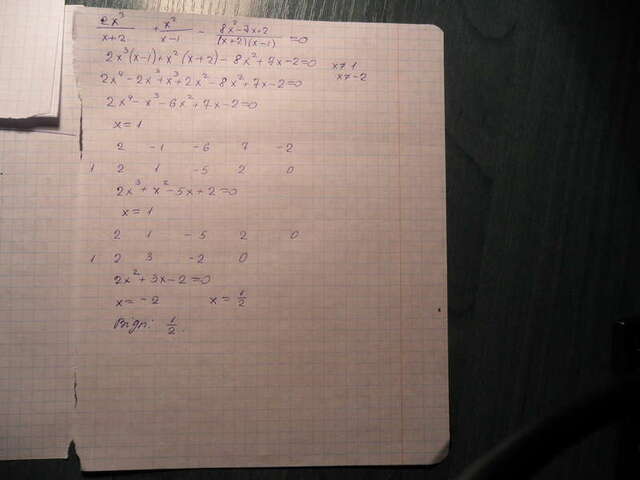 2x³/(x+2) + x²/(x-1) - (8x²-7x+2)/((x+2)(x-1)) = 0
2x³(x-1)+x²(x+2)-8x²+7x-2=0 x≠1
2x⁴-2x³+x³+2x²-8x²+7x-2=0 x≠-2
2x⁴-x³-6x²+7x-2=0
x=1
2 -1 -6 7 -2
1 2 1 -5 2 0
2x³+x²-5x+2=0
x=1
2 1 -5 2 0
1 2 3 -2 0
2x²+3x-2=0
x=-2 x=1/2
Відп: 1/2.